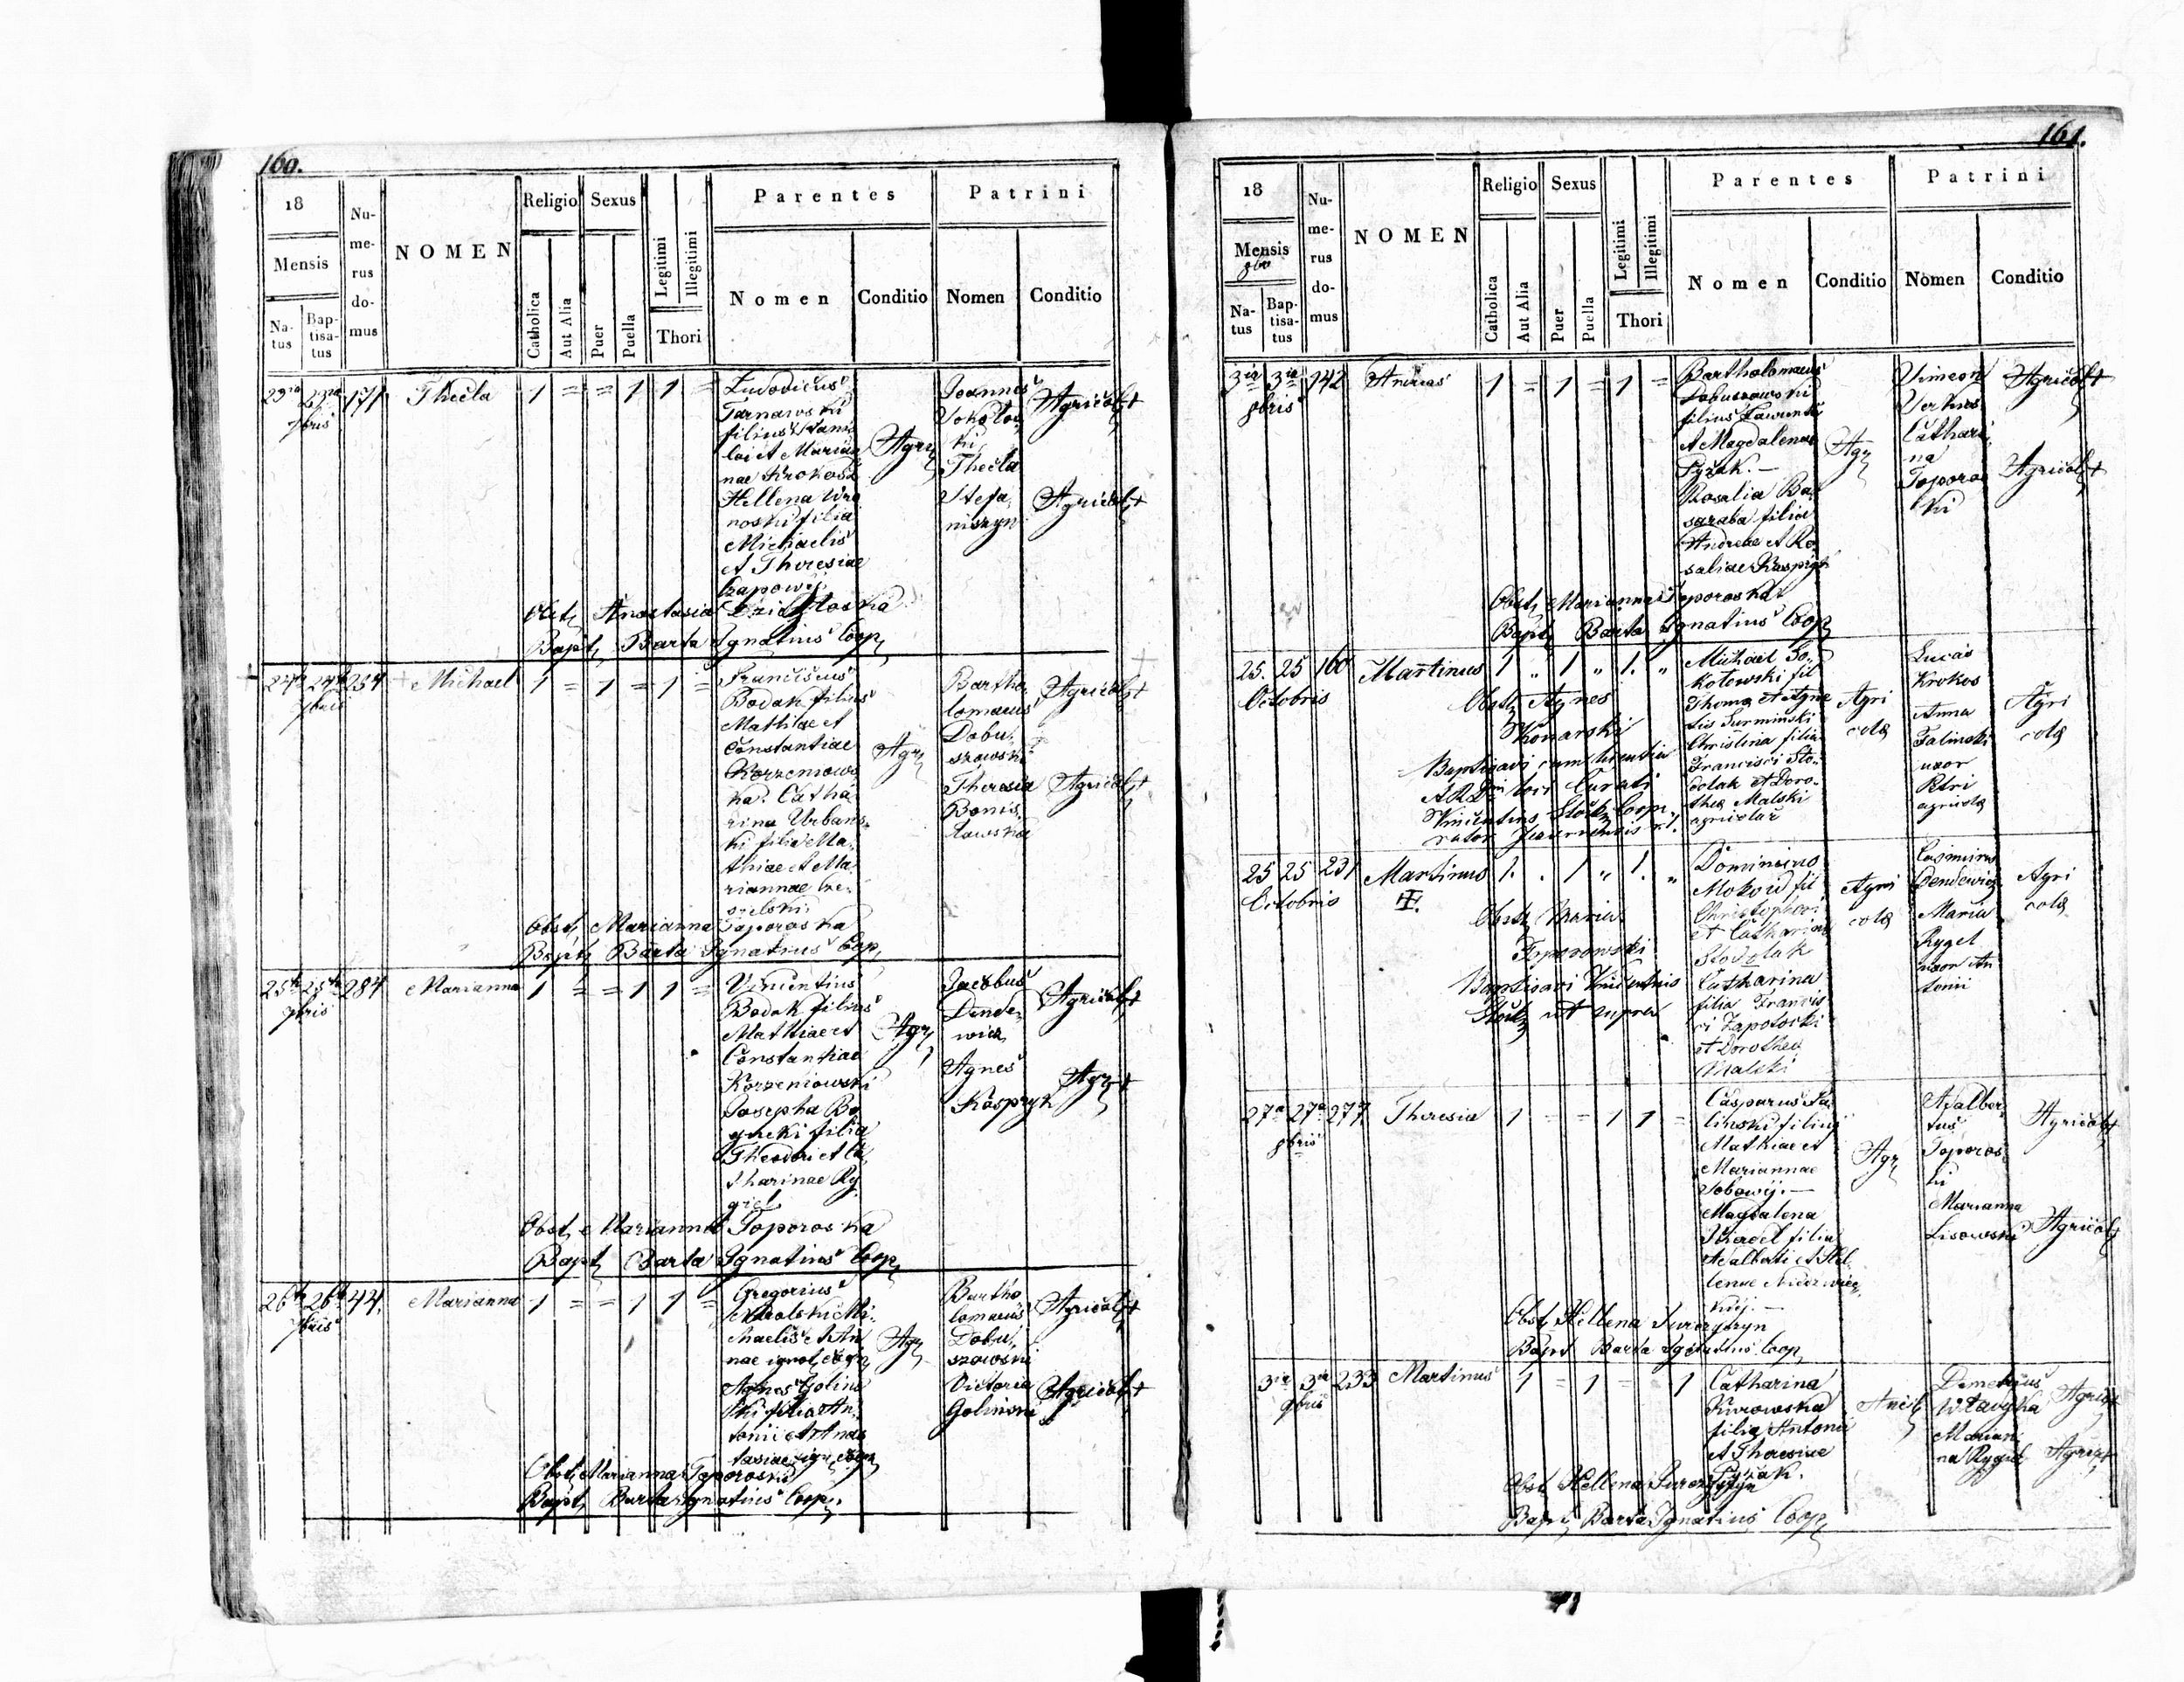 160.
18
Mensis
Na-
tus
Bap-
tisa-
tus
Nu-
me-
rus
do-
mus
NOMEN
Religio
Catholica
Aut Alia
Sexus
Puer
Puella
Legitimi
Illegitimi
Thori
Parentes
Nomen
Conditio
Patrini
Nomen
Conditio
23 23 171 Thecla 1 = = 1 1 =
7bris
Ludovicus
Tarnawski
filius Stanis
lai et Marian
nae Krokosz
Hellena Wro
noski filia
Michaelis
et Theresiae
Czapowij
Agr
Joannes
Sokolow
ki
Thecla
Stefa
niszyn
Agricol +
Agricol +
Obst, Anastasia
Bapt, Barta Ignatius Coop,
24 24 234 Michael 1 = 1 = 1 =
7bris
Franciscus
Bodak filius
Mathiae et
Constantiae
Korzeniows
ka. Catha
rina Urbans
ki filia Ma
thiae et Ma
riannae
Agr
Bartho
lomaeus
Dobu
szowski
Theresia
Bonis
lawska
Agricol +
Agricol +
Obst, Marianna Toporoska
Bapt, Barta Ignatius Coop,
25 25 284 Marianna 1 = = 1 1 =
7bris
Vincentius
Bodak filius
Mathiae et
Constantiae
Korzeniowski
Josepha Bo
gucki filia
Theodori et Ca
tharinae Ry
giel
Agr
Jacobus
Dende
wicz
Agnes
Kasprzyk
Agricol +
Agr +
Obst, Marianna Toporoska
Bapt, Barta Ignatius Coop,
26 26 44. Marianna 1 = = 1 1 =
7bris
Gregorius
Mi
chaelis et An
nae ignot, cogn,
Agnes Golins
ki filia An
tonii et Anas
tasiae ign, cogn,
Agr
Bartho
lomaeus
Dobu
szowski
Victoria
Golinski
Agricol +
Agricol +
Obst, Marianna Toporoski
Bapt, Barta Ignatius Coop,
161.
18
Mensis
8bris
Na-
tus
Bap-
tisa-
tus
Nu-
me-
rus
do-
mus
NOMEN
Religio
Catholica
Aut Alia
Sexus
Puer
Puella
Legitimi
Illegitimi
Thori
Parentes
Nomen
Conditio
Patrini
Nomen
Conditio
3ia 3ia 142 1 = 1 = 1 =
8bris
Bartholomaeus
Dobuszowski
filius Laurenti
et Magdalenae
Pyzak. —
Rosalia Ba
saraba filia
Andreae et Ro
saliae Kasprzyk
Agr
Simeon
Cathari
na
Toporos
ki
Agricol +
Agricol +
Obst, Marianna Toporoska
Bapt, Barta Ignatius Coop,
25. 25 160 Martinus 1 " 1 " 1. "
Octobris
Michael So
kolowski fil
Thoma et Agne
tis Surminski
Christina filia
Francisci Sto
dolak et Doro
thea Malski
agricolae
Agri
cola
Lucas
Krokos
Anna
Falinski
uxor
Petri
agricola
Agri
cola
Obst, Agnes
Konarski
Baptisavi cum licentia
Curati
Vincentius Coope
rator
25 25 231 Martinus 1. . 1 " 1. "
Octobris
Dominicus
fil
Christophori
et Catharina
Stodolak
Catharina
filia Francis
ci Zapotocki
et Dorothea
Malski
Agri
cola
Casimirus
Dendewicz
Maria
Rygel
uxor An
tonii
Agri
cola
Obst, Maria
Toporowski
Baptisavi Vincentius
ut supra
27a 27a 277 Theresia 1 = = 1 1 =
8bris
Casparus Fa
linski filius
Mathiae et
Mariannae
Sobowij. —
Magdalena
filia
Adalberti et Hel
lenae Niedzwiec
kij. —
Agr
Adalber
tus
Toporos
ki
Marianna
Lisowski
Agricol +
Agricol +
Obst, Hellena Jurczyszyn
Bapt, Barta Ignatius Coop,
3ia 3ia 233 Martinus 1 = 1 = 1
9bris
Catharina
Kurowska
filia Antonii
et Theresiae
Pyzak.
Demetrius
Marian
na Rygiel
Obst, Hellena Jurczyszyn
Bapt, Barta Ignatius Coop,